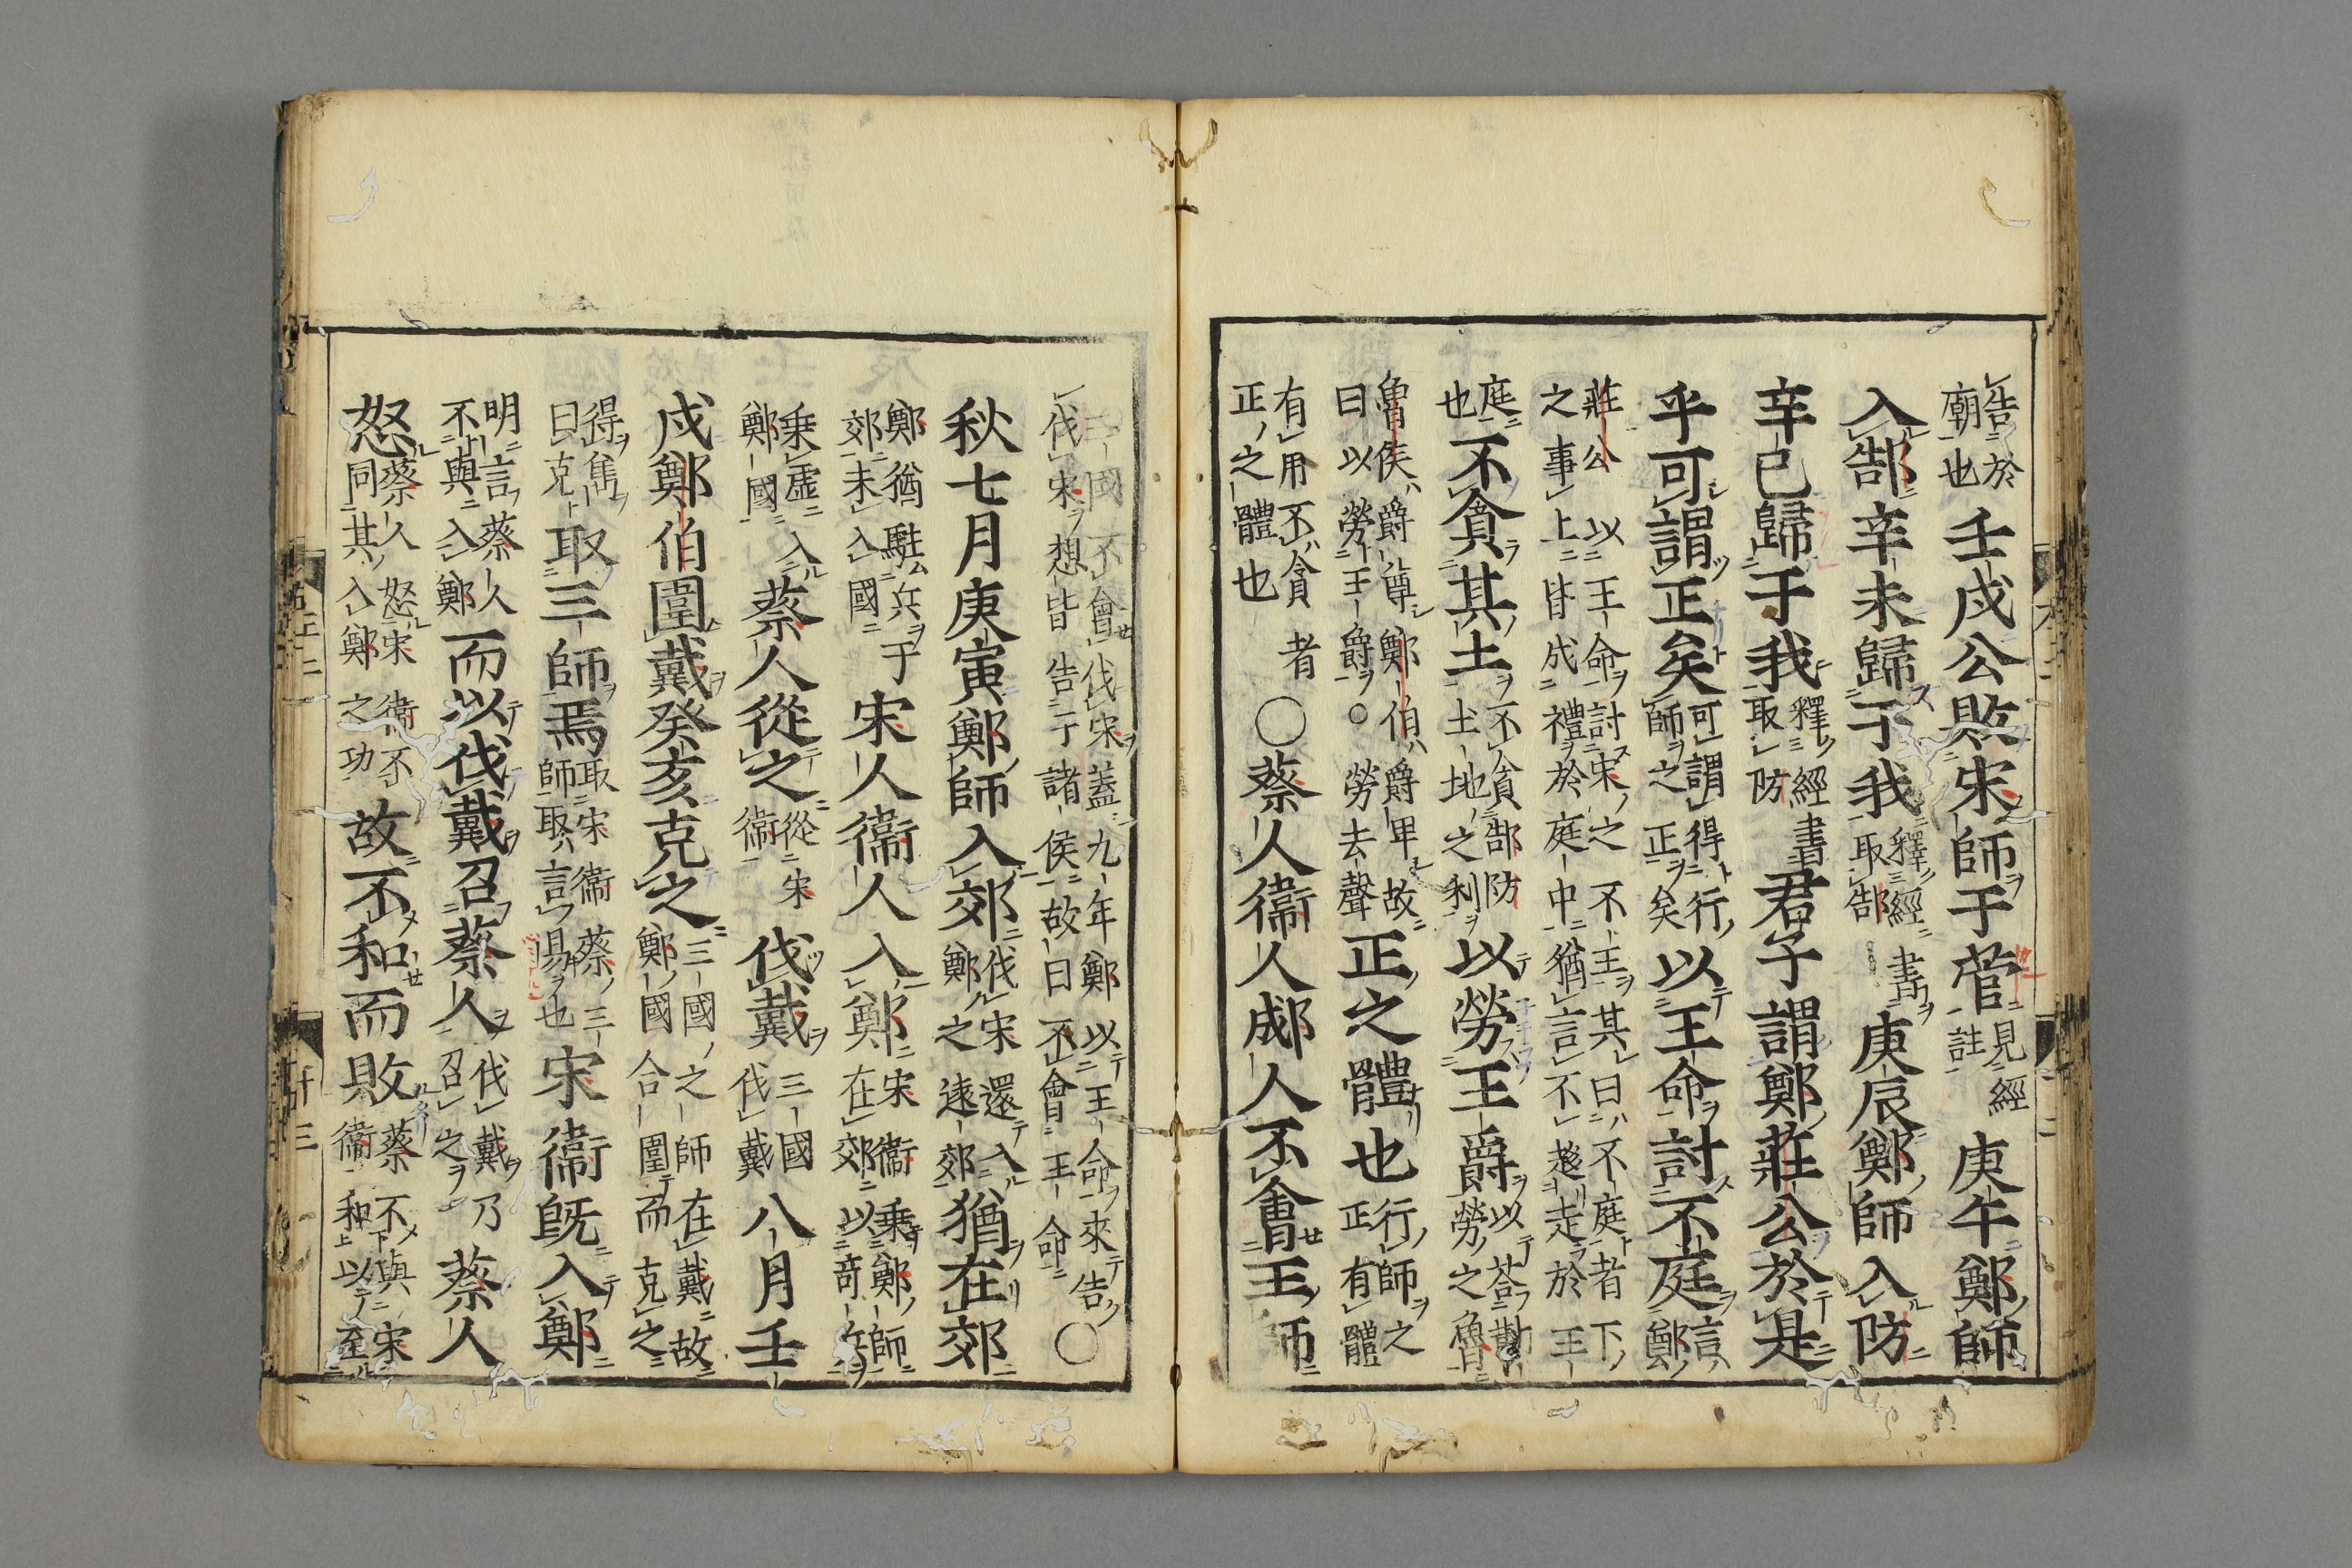 告於廟也壬戌公敗宋師于菅見經註庚午鄭師
入郜辛未歸于我釋經書取郜庚辰鄭師入防
辛巳歸于我釋經書取防君子謂鄭莊公於是
乎可謂正矣可謂得行師之正矣以王命討不庭言鄭
莊公以王命討宋之不王其曰不庭者下之事上皆成禮於庭中猶言不趍走於王
庭也不貪其土不貪郜防土地之利以勞王爵以荅勤勞之魯
魯侯爵尊鄭伯爵卑故曰以勞王爵○勞去聲正之體也行師之正有體
有用不貪者正之體也○蔡人衞人郕人不會王師
三國不會伐宋蓋九年鄭以王命來告伐宋想皆告于諸侯故曰不會王命○
秋七月庚寅鄭師入郊伐宋還入鄭之遠郊猶在郊
鄭猶駐兵于郊未入國宋人衞人入鄭宋衞乗鄭師在郊以奇兵
乗虛入鄭國蔡人從之從宋衞伐戴三國伐戴八月壬
戌鄭伯圍戴癸亥克之三國之師在戴故鄭國合圍而克之
得雋曰克取三師焉取宋衞蔡三師取言易也宋衞既入鄭
明言蔡人不與入鄭而以伐戴召蔡人伐戴乃召之蔡人
怒蔡人怒宋衞不同其入鄭之功故不和而敗蔡不與宋衞和以至